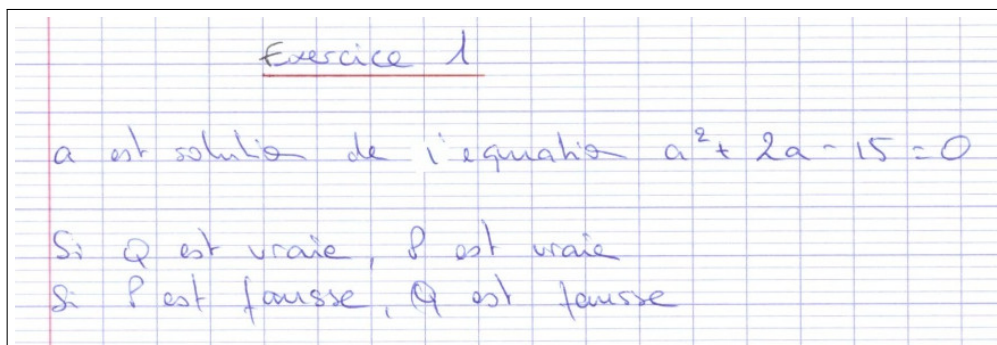 Exercice 1
a est solution de l'equation a² + 2a - 15 = 0
Si Q est vraie, P est vraie
Si P est fausse, Q est fausse